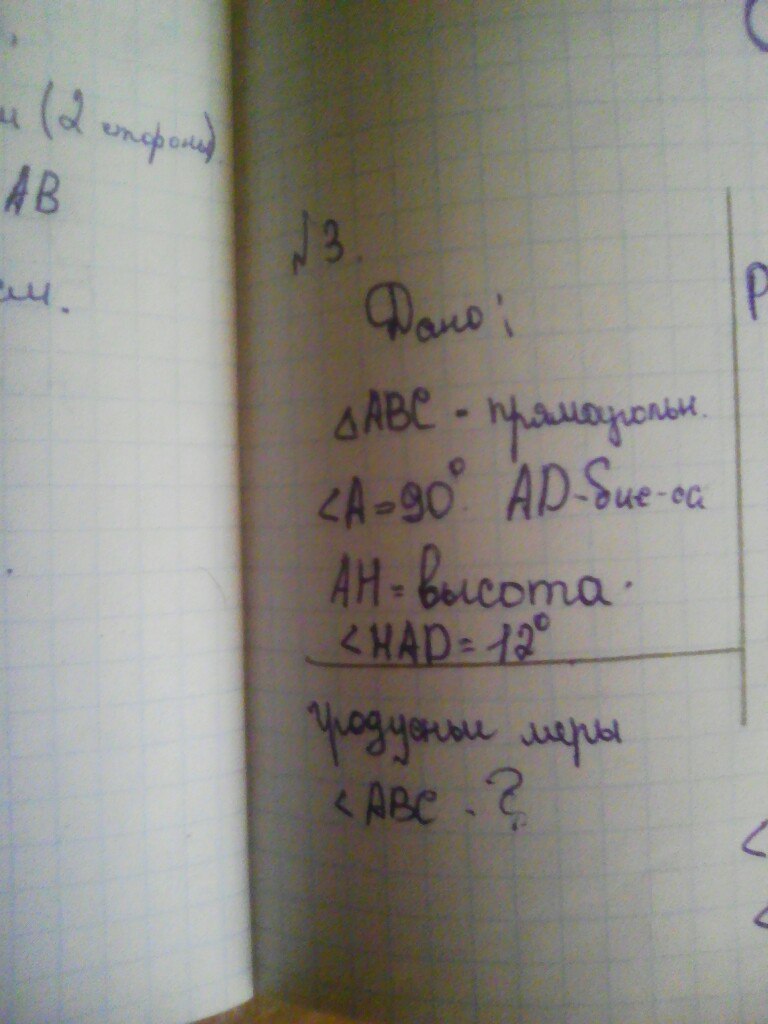 (2 стороны)
AB
см.
№3.
Дано:
△ABC - прямоугольн.
<A=90° AD-бис-са
AH - высота.
<HAD=12°
Градусные меры
<ABC - ?